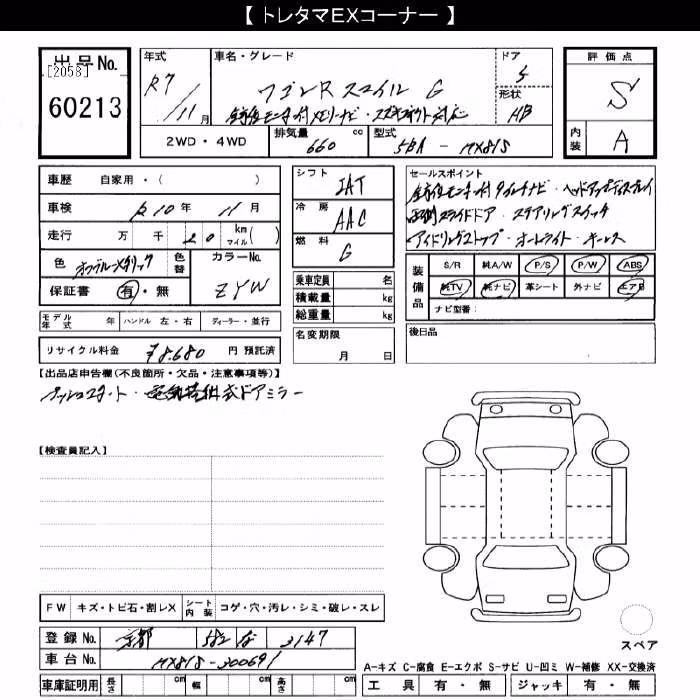 【 トレタマEXコーナー 】
出品No. [2058] 60213
年式 R7 / 11月
車名・グレード ワゴンR スマイル G
全方位モニター付メモリーナビ・スズキコネクト対応
ドア 5
形状 HB
評価点 S
内装 A
2WD・4WD 排気量 660 cc 型式 5BA - MX81S
車歴 自家用・( )
車検 R10年 11月
走行 万 千 20 km マイル ( )
色 オフブルーメタリック 色替 カラーNo. ZYW
保証書 有・無
モデル年式 年 ハンドル 左・右 ディーラー・並行
リサイクル料金 ¥8,680 円 預託済
シフト IAT
冷房 AAC
燃料 G
乗車定員 名
積載量 kg
総重量 kg
名変期限 月 日
セールスポイント
全方位モニター付メモリーナビ・ヘッドアップディスプレイ
両側スライドドア・ステアリングスイッチ
アイドリングストップ・オートライト・キーレス
装備品 S/R 純A/W P/S P/W ABS
純TV 純ナビ 革シート 外ナビ エアB
ナビ型番:
後日品
【出品店申告欄(不良箇所・欠品・注意事項等)】
プッシュスタート・電気格納式ドアミラー
【検査員記入】
FW キズ・トビ石・割レX シート内装 コゲ・穴・汚レ・シミ・破レ・スレ
登録No. 京都 582 3147
車台No. MX81S-300691
車庫証明用 長さ cm 幅 cm 高さ cm
スペア
A-キズ C-腐食 E-エクボ S-サビ U-凹ミ W-補修 XX-交換済
工具 有・無 ジャッキ 有・無